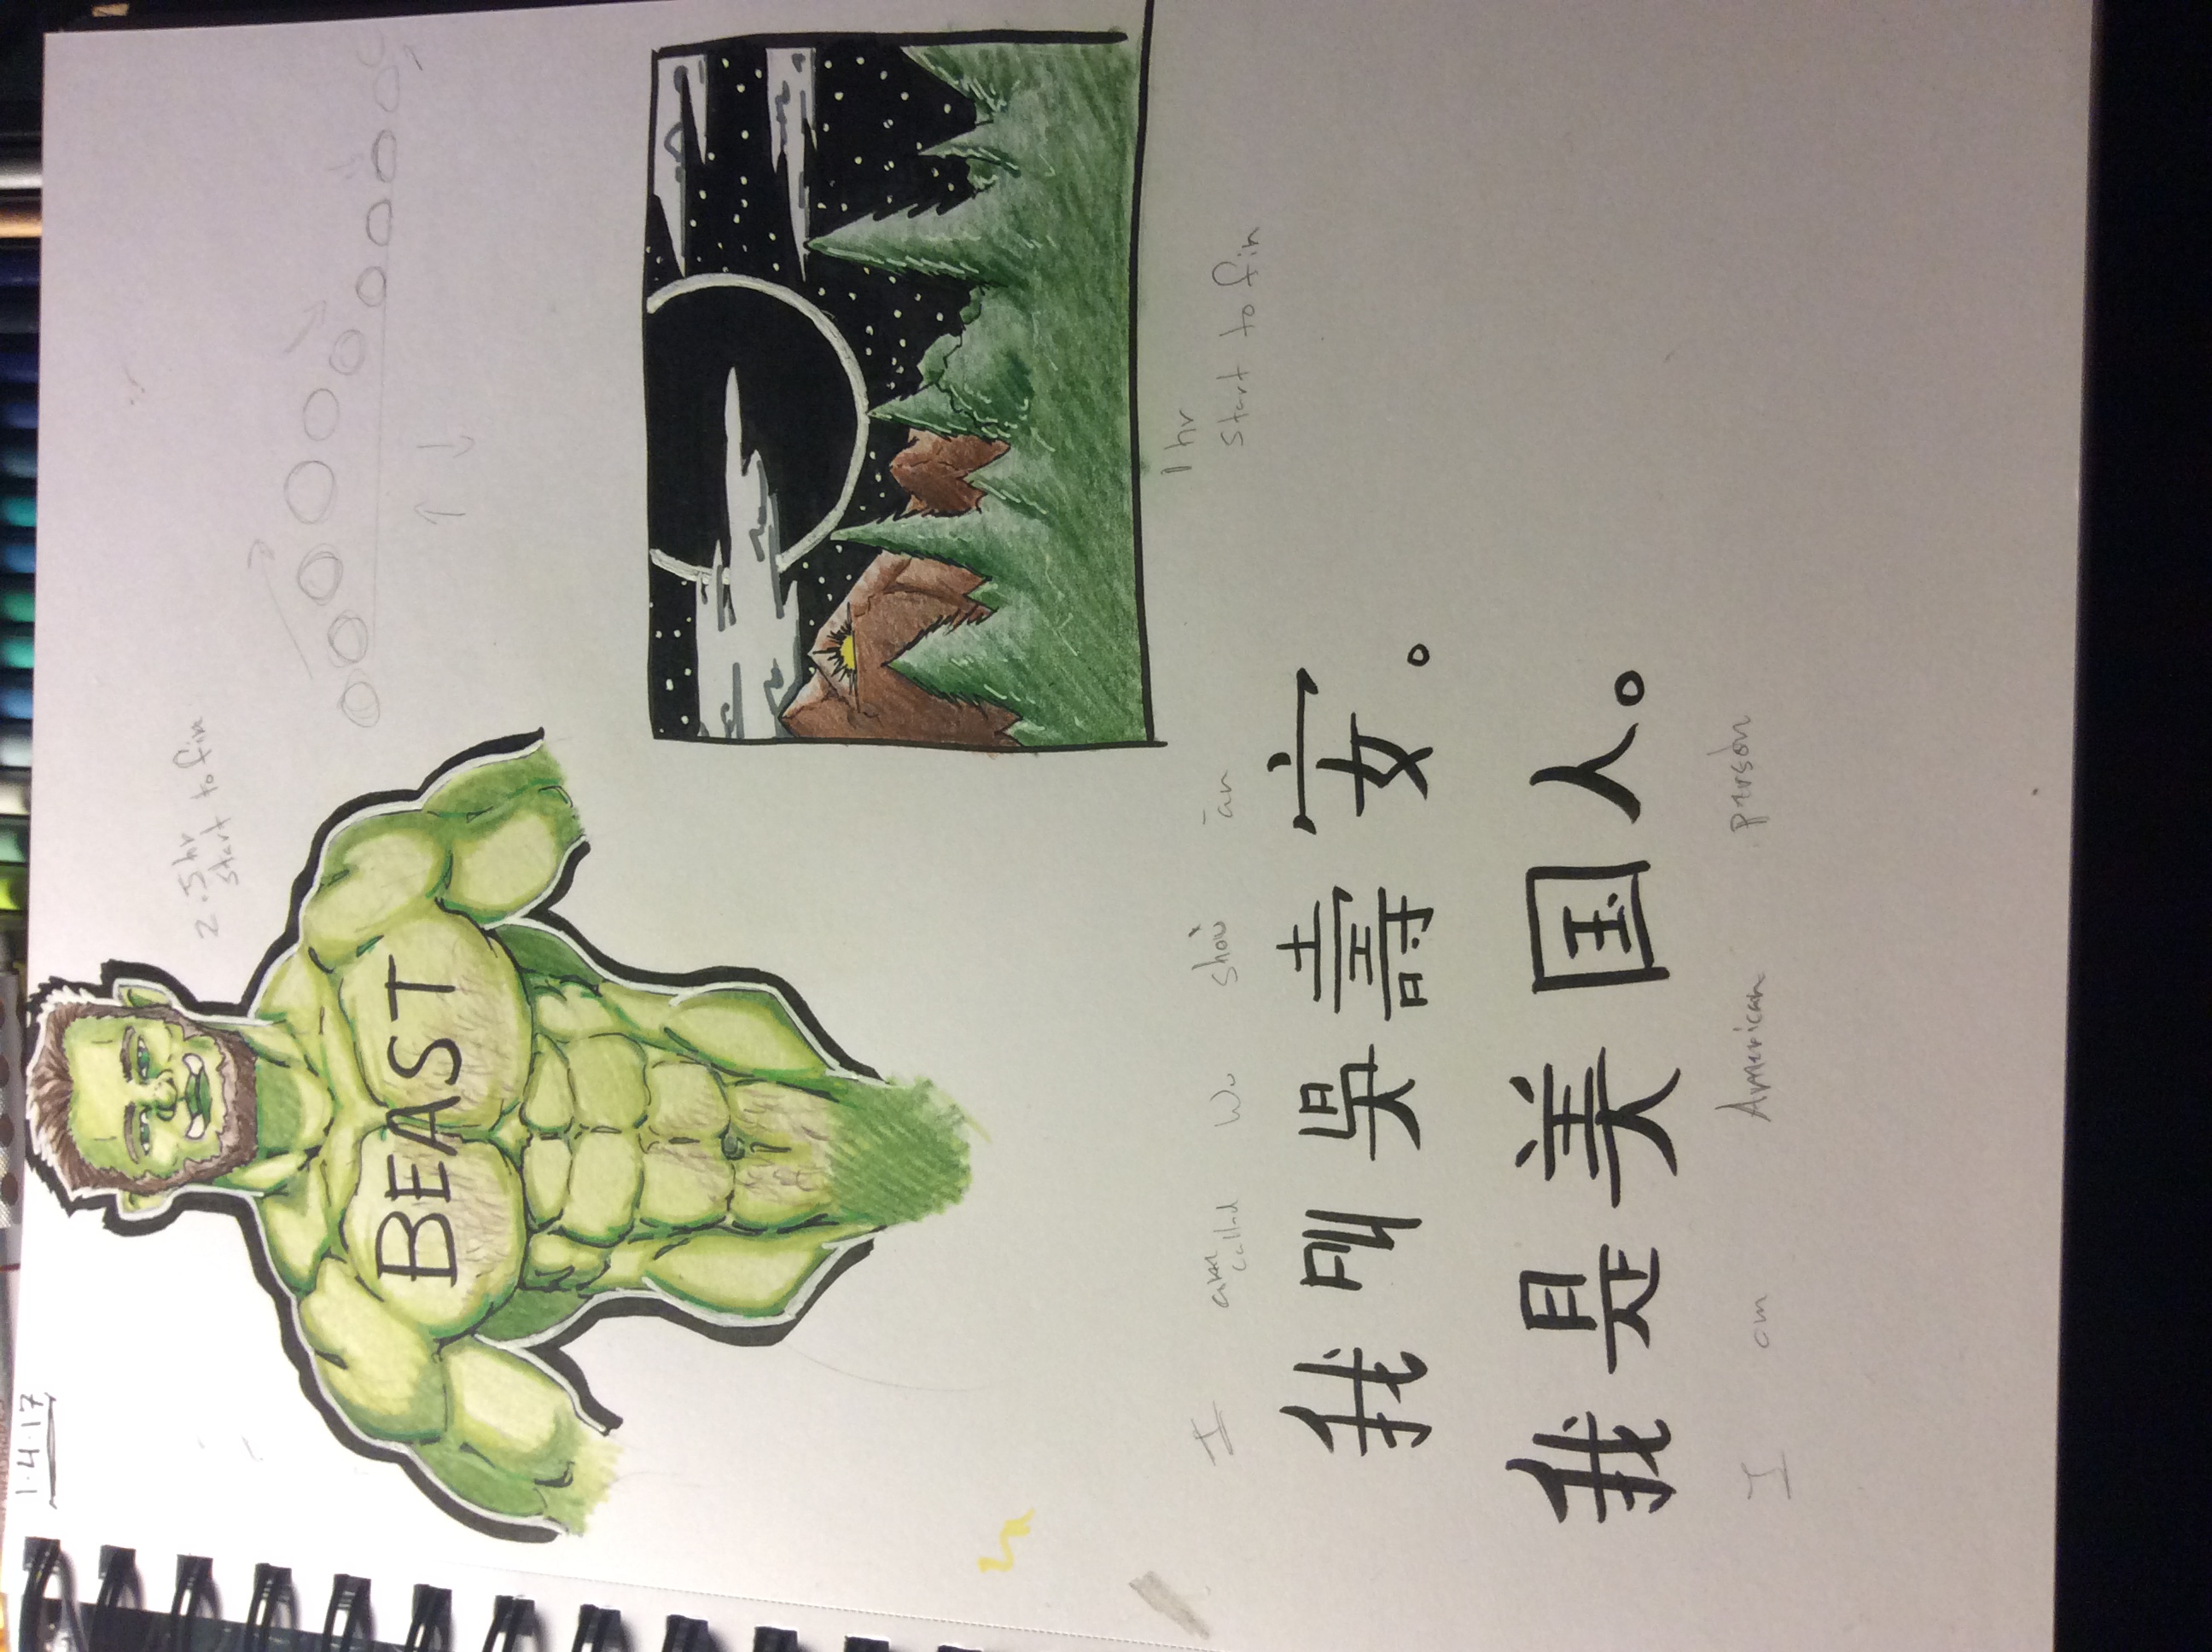 1.4.17
2.5 hr
start to fin
BEAST
1 hr
start to fin
I am called Wu shòu ān
我叫吳壽安。
我是美国人。
I am American person